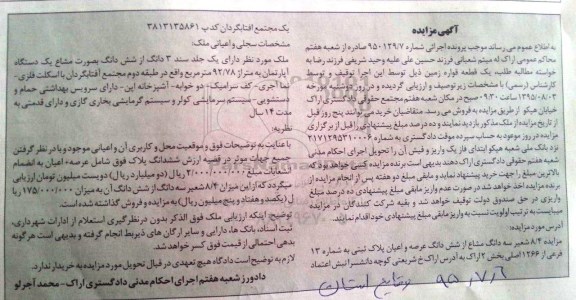 آگهی مزایده
به اطلاع عموم می رساند بموجب پرونده اجرائی شماره ۹۵۰۱۲۹/۷ صادره از شعبه هفتم
محاکم عمومی اراک له میثم شعبانی فرزند حسین علی علیه وحید شریفی فرزند رضا به
خواسته مطالبه طلب، یک قطعه قواره زمین ذیل توسط این اجرا توقیف و توسط
کارشناس (رسمی) با مشخصات زیر توصیف و ارزیابی گردیده و در روز مورخه
۹۵/۰۸/۰۲ ساعت ۹:۳۰ صبح در مکان شعبه هفتم مجتمع حقوقی دادگستری اراک
خیابان هپکو از طریق مزایده به فروش می رسد. متقاضیان خرید می توانند پنج روز قبل
از تاریخ مزایده از ملک مذکور بازدید نمایند و ده درصد مبلغ پیشنهادی را قبل از برگزاری
مزایده در روز موعود به حساب سپرده موقت دادگستری به شماره
نزد بانک ملی شعبه هپکو ابتدای فاز یک واریز و فیش آن را تحویل اجرای احکام مدنی
شعبه هفتم حقوقی دادگستری اراک دهند بدیهی است برنده مزایده کسی خواهد بود که
بالاترین مبلغ را جهت خرید پیشنهاد نماید و مابقی مبلغ دو هفته پس از انجام مزایده از
برنده مزایده اخذ خواهد شد در صورت عدم واریز مابقی مبلغ پیشنهادی ده درصد مبلغ
واریزی در حق صندوق دولت توقیف خواهد شد و بقیه شرکت کنندگان در مزایده
میبایست به ترتیب اولویت نسبت به واریز مابقی مبلغ پیشنهادی خود اقدام نمایند.
آدرس مورد مزایده:
مزایده ۸/۴ شعیر سه دانگ مشاع از شش دانگ عرصه و اعیان پلاک ثبتی به شماره ۱۳
فرعی از ۱۲۶۶ اصلی بخش ۲ اراک به آدرس اراک خ شریعتی کوچه دانشسرا نبش اعتماد
یک مجتمع افتابگردان کد پ ۳۸۱۳۱۳۵۸۶۱
مشخصات سجلی و اعیانی ملک:
ملک مورد نظر دارای یک جلد سند ۳ دانگ از شش دانگ بصورت مشاع یک دستگاه
آپارتمان به متراژ ۹۲/۷۸ متر مربع واقع در طبقه دوم مجتمع آفتابگردان با اسکلت فلزی-
نما آجری- کف سرامیک- دو خوابه- آشپزخانه اپن- دارای سرویس بهداشتی حمام و
دستشویی- سیستم سرمایشی کولر و سیستم گرمایشی بخاری گازی و دارای قدمتی به
مدت ۱۴ سال
نظریه:
با عنایت به توضیحات فوق و موقعیت محل و کاربری آن و اعیانی موجود و با در نظر گرفتن
جمیع جهات موثر در قضیه ارزش ششدانگ پلاک فوق شامل عرصه، اعیان به انضمام
انشعابات مبلغ ۲/۰۰۰/۰۰۰/۰۰۰ ریال (دو میلیارد ریال) دویست میلیون تومان ارزیابی
میگردد که از این میزان ۸/۴ شعیر سه دانگ از شش دانگ آن به میزان ۱۷۵/۰۰۰/۰۰۰ ریال
(یکصد و هفتاد و پنج میلیون ریال) به مزایده و فروش گذاشته شده است.
توضیح اینکه ارزیابی ملک فوق الذکر بدون در نظر گیری استعلام از ادارات شهرداری،
ثبت اسناد، بانک ها، دارایی و سایر ارگان های ذیربط انجام گرفته و بدیهی است هرگونه
بدهی احتمالی از قیمت فوق کسر خواهد شد.
لازم به توضیح است دادگاه هیچ تعهدی در قبال تحویل مورد مزایده به خریدار ندارد.
دادورز شعبه هفتم اجرای احکام مدنی دادگستری اراک - محمد آجرلو
۹۵/۷/۶